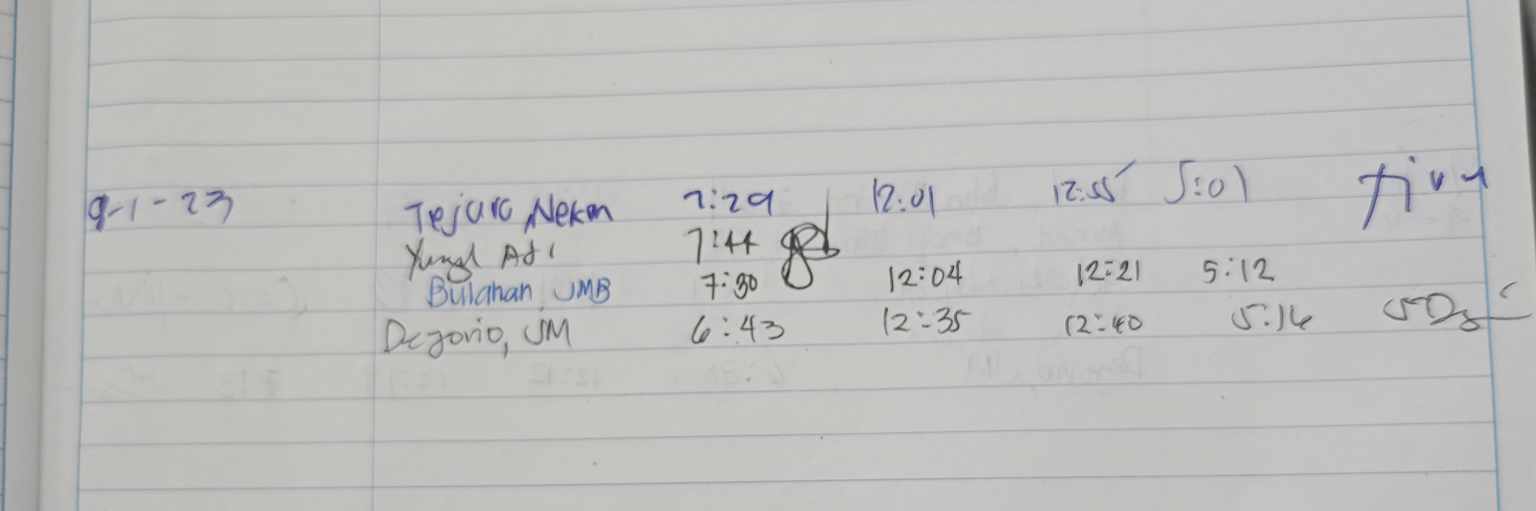 9-1-23 Tejuro, Nekm 7:29 12:01 12:55 5:01
Yungl Adi 7:44
Bulahan, JMB 7:30 12:04 12:21 5:12
Degorio, JM 6:43 12:35 12:40 5:16